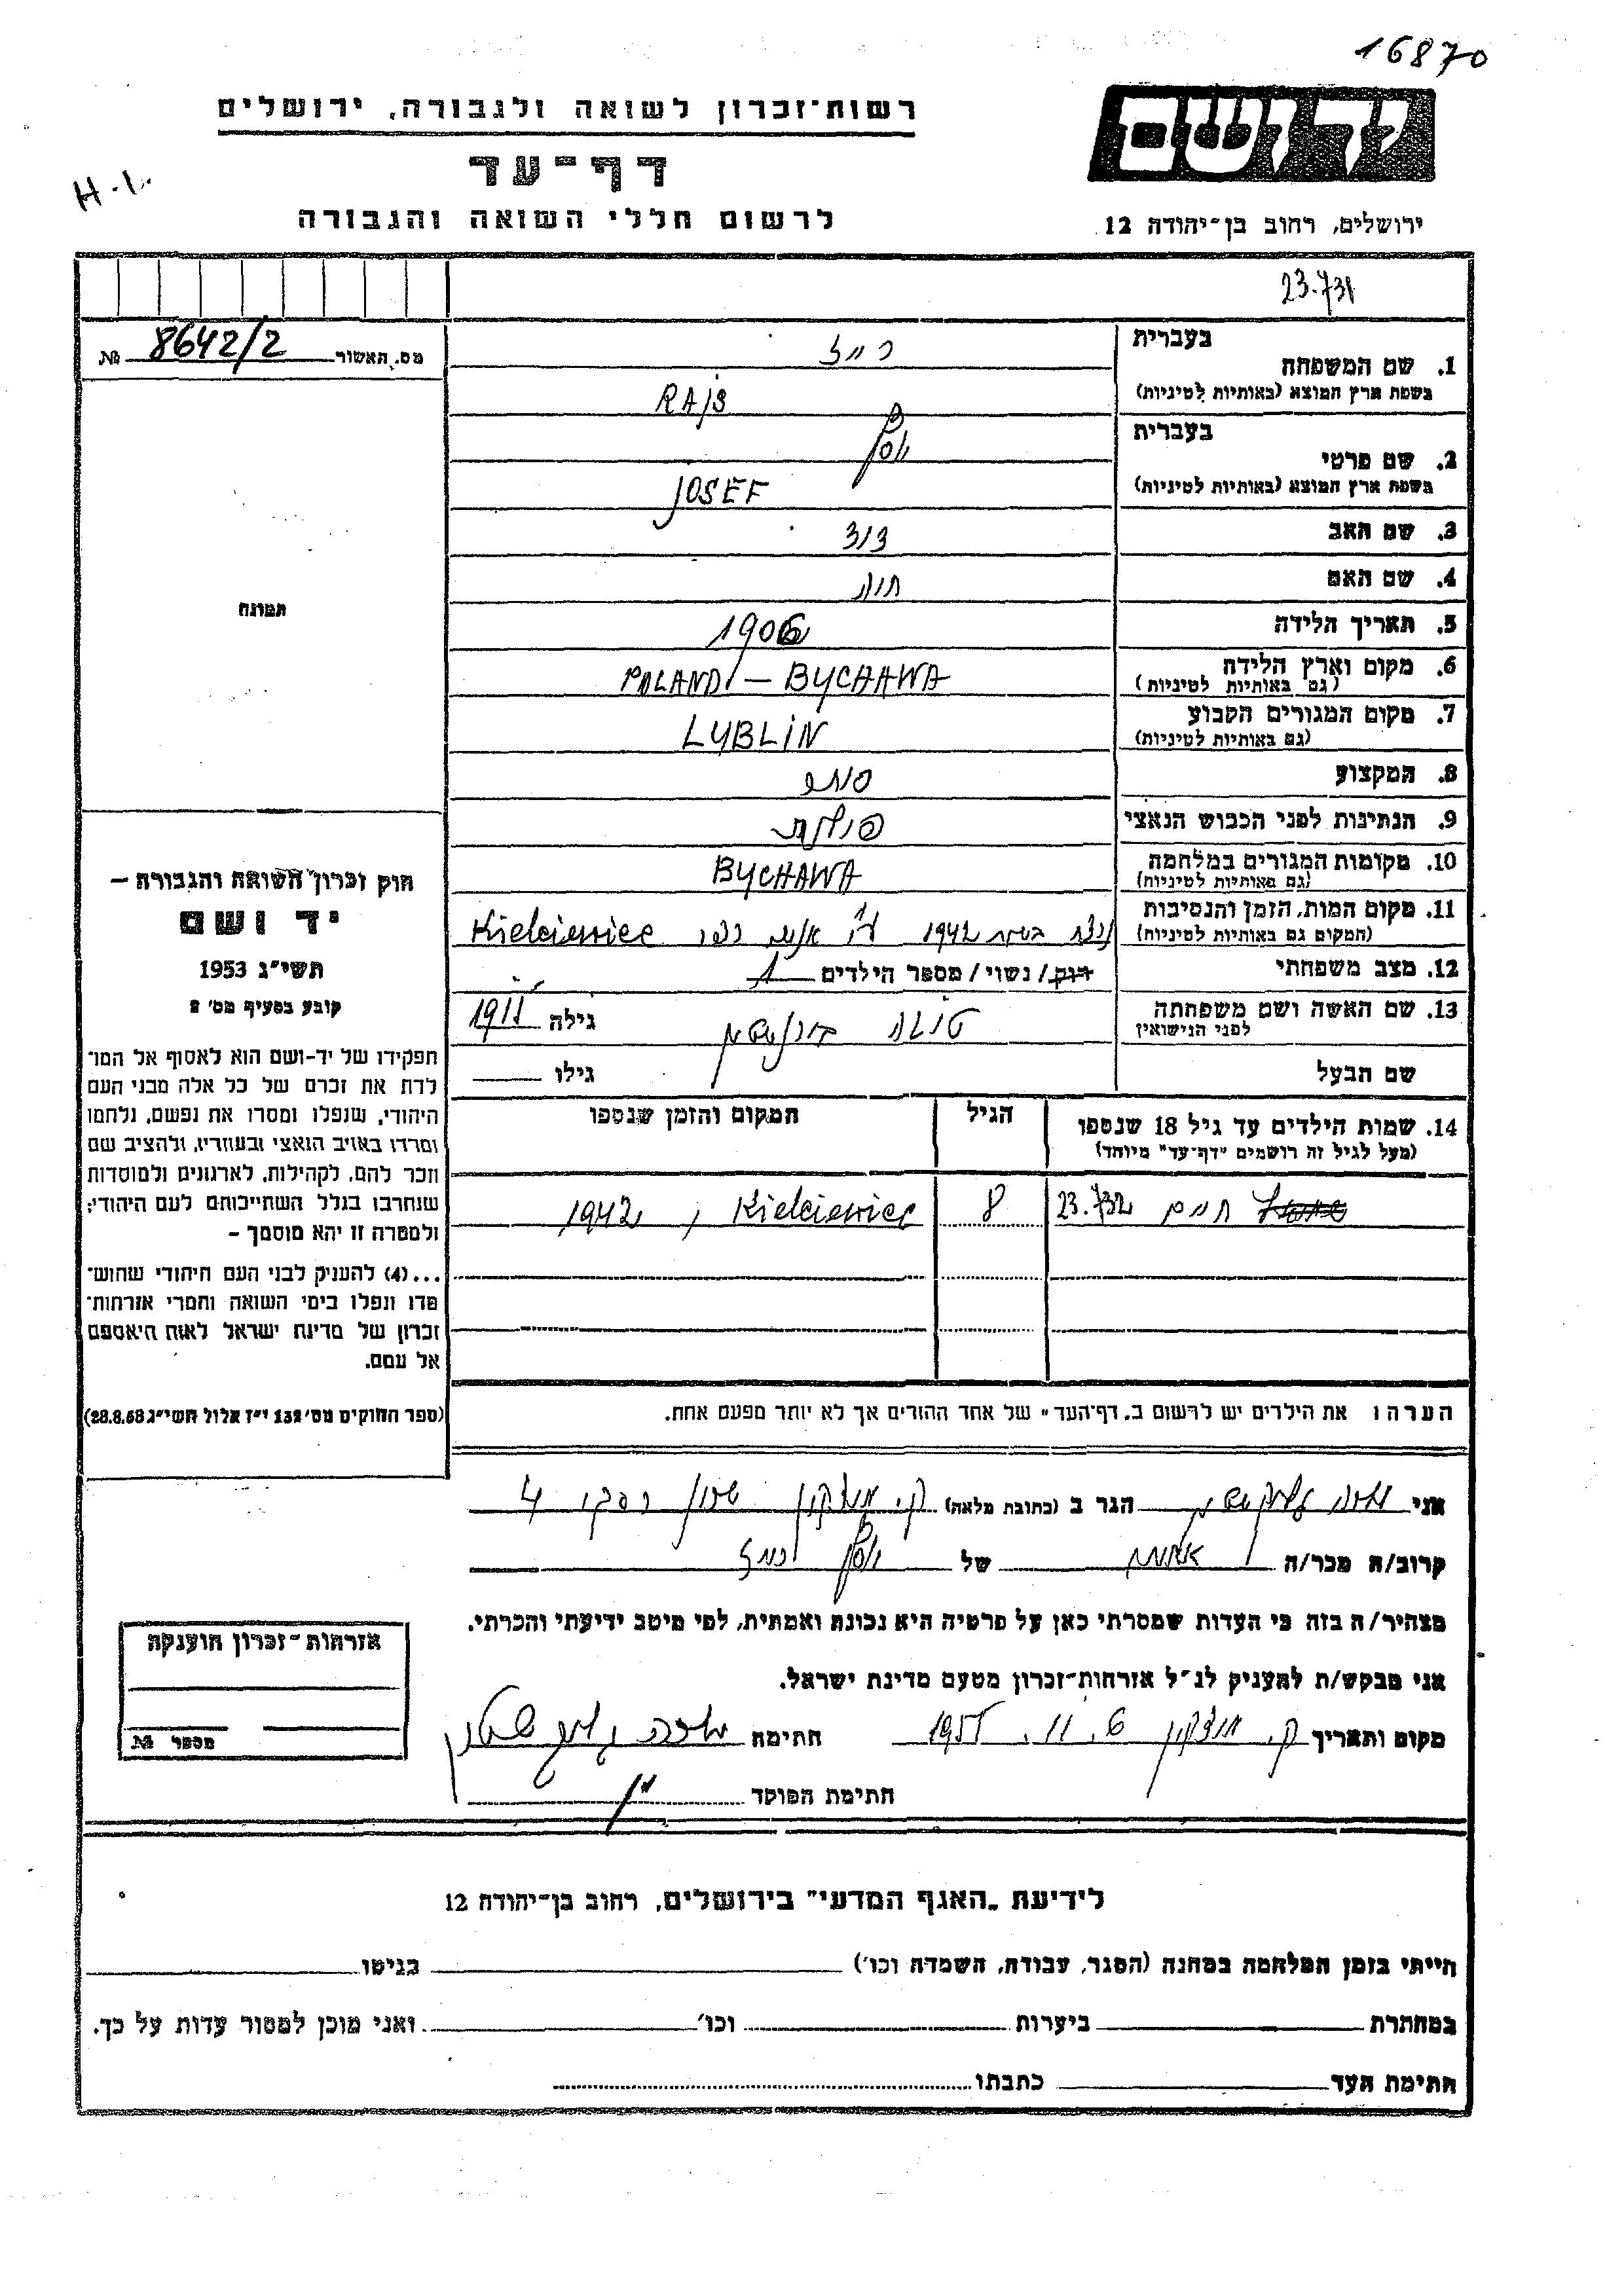 16870
רשות־זכרון לשואה ולגבורה, ירושלים
דף־עד
לרשום חללי השואה והגבורה
H-1.
יד ושם
ירושלים, רחוב בן־יהודה 12
23.731
מס. תאשור 8642/2 №
בעברית
1. שם המשפחה
בשפת ארץ המוצא (באותיות לטיניות)
RAJS
בעברית
2. שם פרטי יוסף
בשפת ארץ המוצא (באותיות לטיניות)
JOSEF
3. שם האב דוד
4. שם האם חוה
5. תאריך הלידה 1906
6. מקום וארץ הלידה POLAND - BYCHAWA
(גם באותיות לטיניות)
7. מקום המגורים הקבוע LYBLIN
(גם באותיות לטיניות)
8. המקצוע סוחר
9. הנתינות לפני הכבוש הנאצי פולנית
10. מקומות המגורים במלחמה BYCHAWA
(גם באותיות לטיניות)
11. מקום המות, הזמן והנסיבות 1942 ע"י אנשי כפר Kielciewiec
(המקום גם באותיות לטיניות)
12. מצב משפחתי רווק/ נשוי/ מספר הילדים 1
13. שם האשה ושם משפחתה
לפני הנישואין
גילה 1911
שם הבעל גילו
14. שמות הילדים עד גיל 18 שנספו
(מעל לגיל זה רושמים "דף־עד" מיוחד)
הגיל
המקום והזמן שנספו
חיים 23.732 8 Kielciewiec , 1942
הערה: את הילדים יש לרשום ב„דף־העד" של אחד ההורים אך לא יותר מפעם אחת.
תמונה
חוק זכרון השואה והגבורה –
יד ושם
תשי"ג 1953
קובע בסעיף מס' 2
תפקידו של יד-ושם הוא לאסוף אל המו־
לדת את זכרם של כל אלה מבני העם
היהודי, שנפלו ומסרו את נפשם, נלחמו
ומרדו באויב הנאצי ובעוזריו, ולהציב שם
וזכר להם, לקהילות, לארגונים ולמוסדות
שנחרבו בגלל השתייכותם לעם היהודי;
ולמטרה זו יהא מוסמך –
...(4) להעניק לבני העם היהודי שהוש־
מדו ונפלו בימי השואה והמרי אזרחות־
זכרון של מדינת ישראל לאות היאספם
אל עמם.
(ספר החוקים מס' 132 י"ז אלול תשי"ג 28.8.53)
אני הגר ב (כתובת מלאה) ק. מוצקין 4
קרוב/ה מכר/ה אחות של יוסף
מצהיר/ה בזה כי העדות שמסרתי כאן על פרטיה היא נכונה ואמתית, לפי מיטב ידיעתי והכרתי.
אני מבקש/ת להעניק לנ"ל אזרחות־זכרון מטעם מדינת ישראל.
מקום ותאריך ק. מוצקין 6. 11. 1955 חתימה
חתימת הפוקד
אזרחות־זכרון הוענקה
מספר №
לידיעת „האגף המדעי" בירושלים, רחוב בן־יהודה 12
הייתי בזמן המלחמה במחנה (הסגר, עבודה, השמדה וכו') בגיטו
במחתרת ביערות וכו' ואני מוכן למסור עדות על כך.
חתימת העד כתבתו